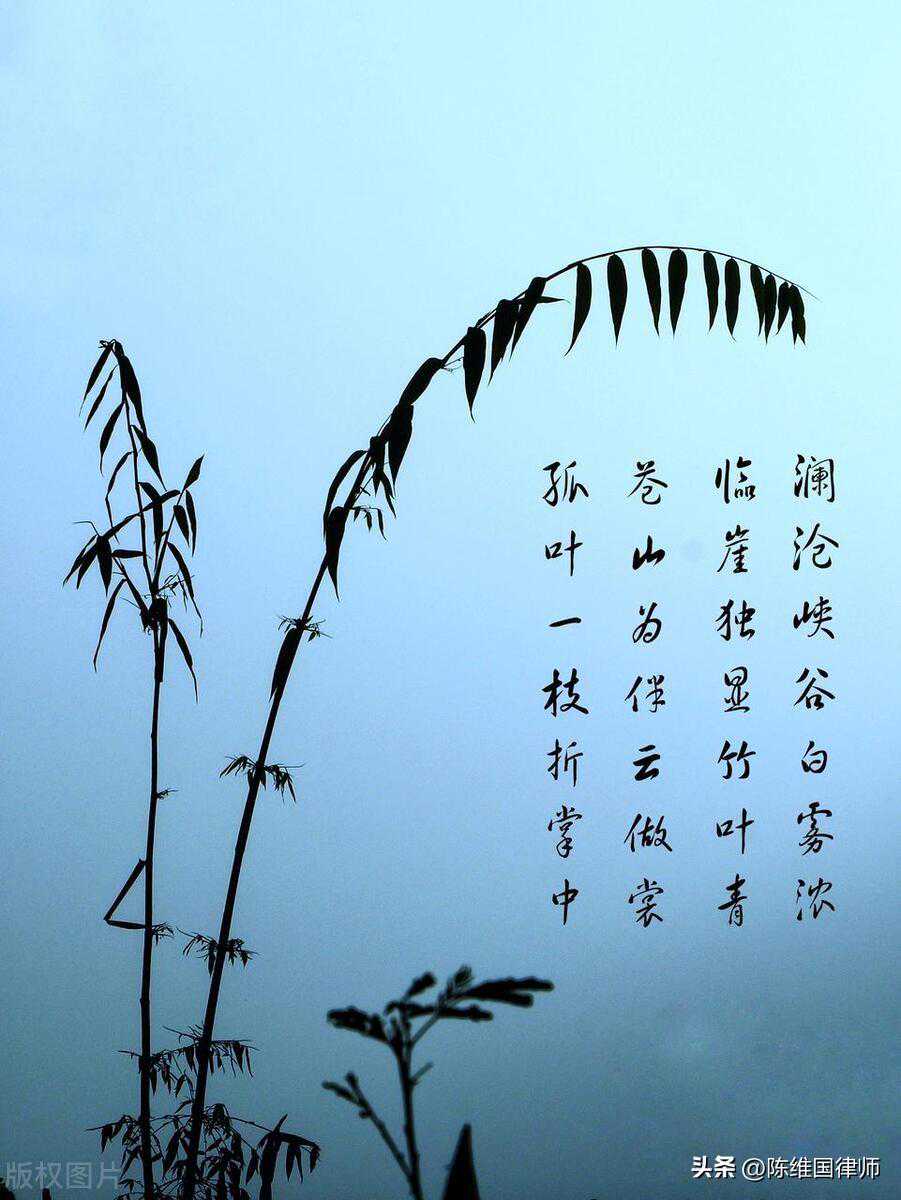 澜沧峡谷白雾浓
临崖独显竹叶青
苍山为伴云做裳
孤叶一枝折掌中
版权图片
头条 @陈维国律师